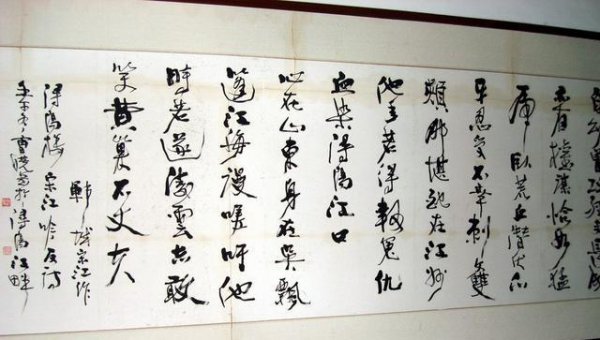 自幼曾攻經史長成
亦有權謀恰如猛
虎臥荒丘潛伏爪
牙忍受不幸刺文雙
頰那堪配在江州
他年若得報冤仇
血染潯陽江口
心在山東身在吳飄
蓬江海漫嗟吁他
時若遂凌雲志敢
笑黃巢不丈夫
鄆城宋江作
潯陽樓宋江吟反詩
於潯陽江畔